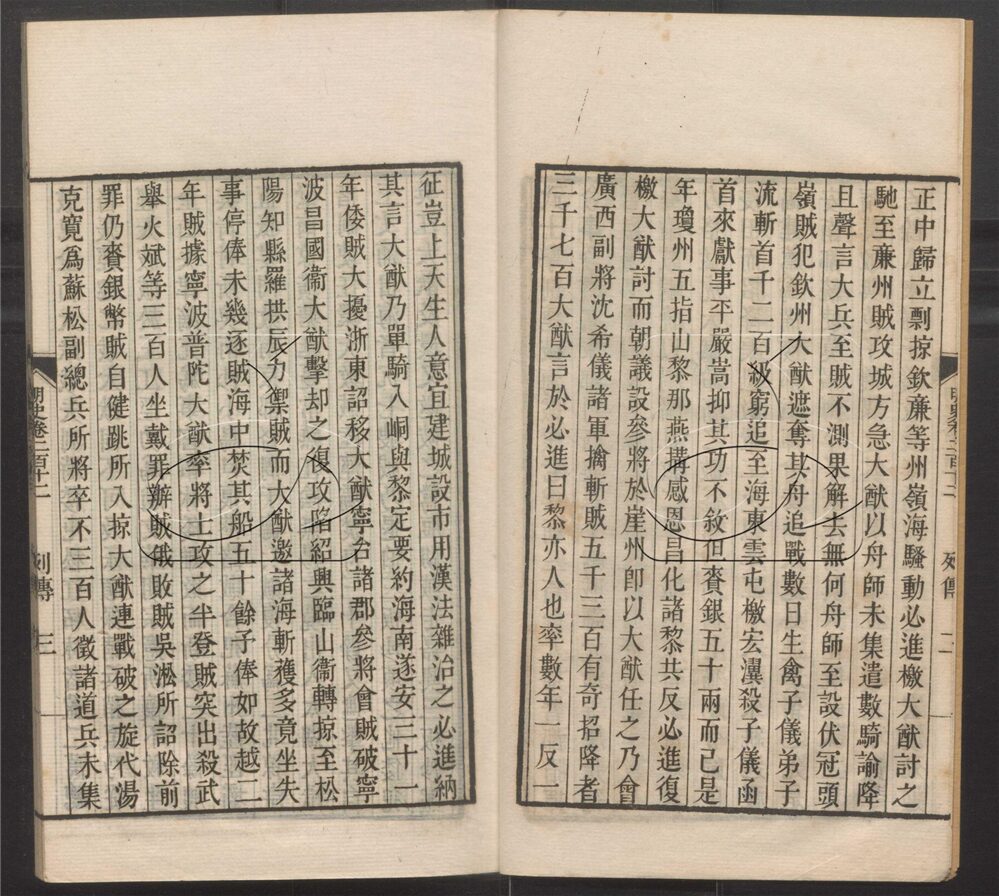 正中歸立剽掠欽廉等州嶺海騷動必進檄大猷討之
馳至廉州賊攻城方急大猷以舟師未集遣數騎諭降
且聲言大兵至賊不測果解去無何舟師至設伏冠頭
嶺賊犯欽州大猷遮奪其舟追戰數日生禽子儀弟子
流斬首千二百級窮追至海東雲屯檄宏瀷殺子儀函
首來獻事平嚴嵩抑其功不敘但賚銀五十兩而已是
年瓊州五指山黎那燕搆感恩昌化諸黎共反必進復
檄大猷討而朝議設參將於崖州卽以大猷任之乃會
廣西副將沈希儀諸軍擒斬賊五千三百有奇招降者
三千七百大猷言於必進曰黎亦人也率數年一反一
明史卷二百十二 列傳 二
征豈上天生人意宜建城設市用漢法雜治之必進納
其言大猷乃單騎入峒與黎定要約海南遂安三十一
年倭賊大擾浙東詔移大猷寧台諸郡參將會賊破寧
波昌國衞大猷擊却之復攻陷紹興臨山衞轉掠至松
陽知縣羅拱辰力禦賊而大猷邀諸海斬獲多竟坐失
事停俸未幾逐賊海中焚其船五十餘予俸如故越二
年賊據寧波普陀大猷率將士攻之半登賊突出殺武
舉火斌等三百人坐戴罪辦賊俄敗賊吳淞所詔除前
罪仍賚銀幣賊自健跳所入掠大猷連戰破之旋代湯
克寬爲蘇松副總兵所將卒不三百人徵諸道兵未集
明史卷二百十二 列傳 三